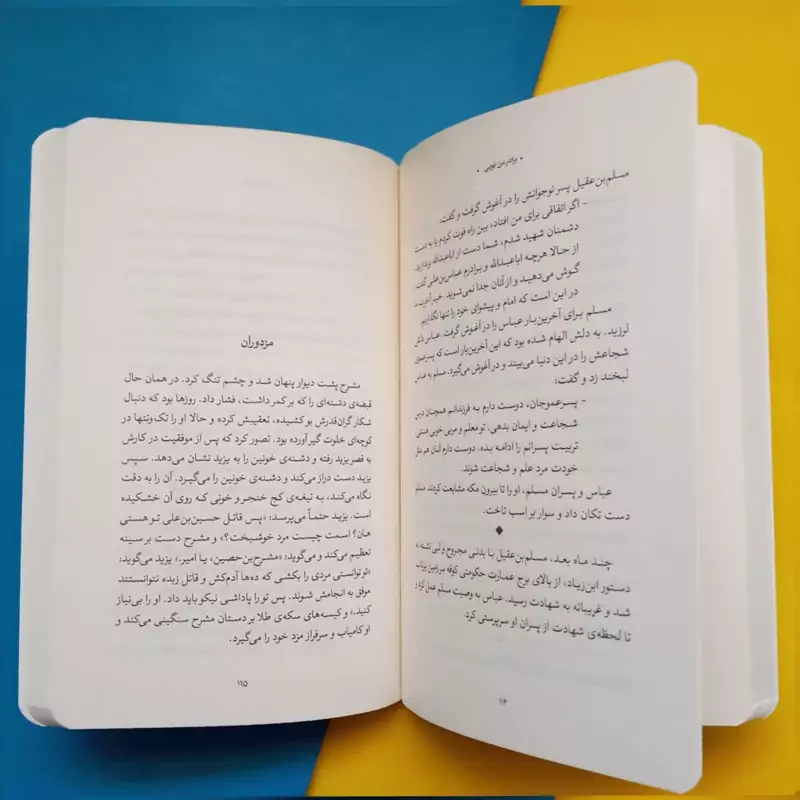 • برادر من تویی •
مسلم‌بن‌عقیل پسر نوجوانش را در آغوش گرفت و گفت:
- اگر اتفاقی برای من افتاد، بین راه فوت کردم یا به دست
دشمنان شهید شدم، شما دست از اباعبدالله برندارید.
از حالا هرچه اباعبدالله و برادرم عباس‌بن‌علی گفت
گوش می‌دهید و از آنان جدا نمی‌شوید. خیر آخرت ما
در این است که امام و پیشوای خود را تنها نگذاریم.
مسلم برای آخرین‌بار عباس را در آغوش گرفت. عباس دلش
لرزید. به دلش الهام شده بود که این آخرین‌بار است که پسرعموی
شجاعش را در این دنیا می‌بیند و در آغوش می‌گیرد. مسلم به عباس
لبخند زد و گفت:
- پسرعموجان، دوست دارم به فرزندانم همچنان درس
شجاعت و ایمان بدهی. تو معلم و مربی خوبی هستی.
تربیت پسرانم را ادامه بده. دوست دارم آنان هم مثل
خودت مرد علم و شجاعت شوند.
عباس و پسران مسلم، او را تا بیرون مکه مشایعت کردند. مسلم
دست تکان داد و سوار بر اسب تاخت.
◆
چند ماه بعد، مسلم‌بن‌عقیل با بدنی مجروح و لبی تشنه به
دستور ابن‌زیاد، از بالای برج عمارت حکومتی کوفه بر زمین پرتاب
شد و غریبانه به شهادت رسید. عباس به وصیت مسلم عمل کرد و
تا لحظه‌ی شهادت از پسران او سرپرستی کرد.
۱۱۴
مزدوران
مشرح پشت دیوار پنهان شد و چشم تنگ کرد. در همان حال
قبضه‌ی دشنه‌ای را که بر کمر داشت، فشار داد. روزها بود که دنبال
شکار گران‌قدرش بو کشیده، تعقیبش کرده و حالا او را تک‌وتنها در
کوچه‌ای خلوت گیر آورده بود. تصور کرد که پس از موفقیت در کارش
به قصر یزید رفته و دشنه‌ی خونین را به یزید نشان می‌دهد. سپس
یزید دست دراز می‌کند و دشنه‌ی خونین را می‌گیرد. آن را به دقت
نگاه می‌کند، به تیغه‌ی کج خنجر و خونی که روی آن خشکیده
است. یزید حتماً می‌پرسد: «پس قاتل حسین‌بن‌علی تو هستی
هان؟ اسمت چیست مرد خوشبخت؟» و مشرح دست بر سینه
تعظیم می‌کند و می‌گوید: «مشرح‌بن‌حصین، یا امیر.» یزید می‌گوید:
«تو توانستی مردی را بکشی که ده‌ها آدم‌کش و قاتل زبده نتوانستند
موفق به انجامش شوند. پس تو را پاداشی نیکو باید داد. او را بی‌نیاز
کنید.» و کیسه‌های سکه‌ی طلا بر دستان مشرح سنگینی می‌کند و
او کامیاب و سرفراز مزد خود را می‌گیرد.
۱۱۵